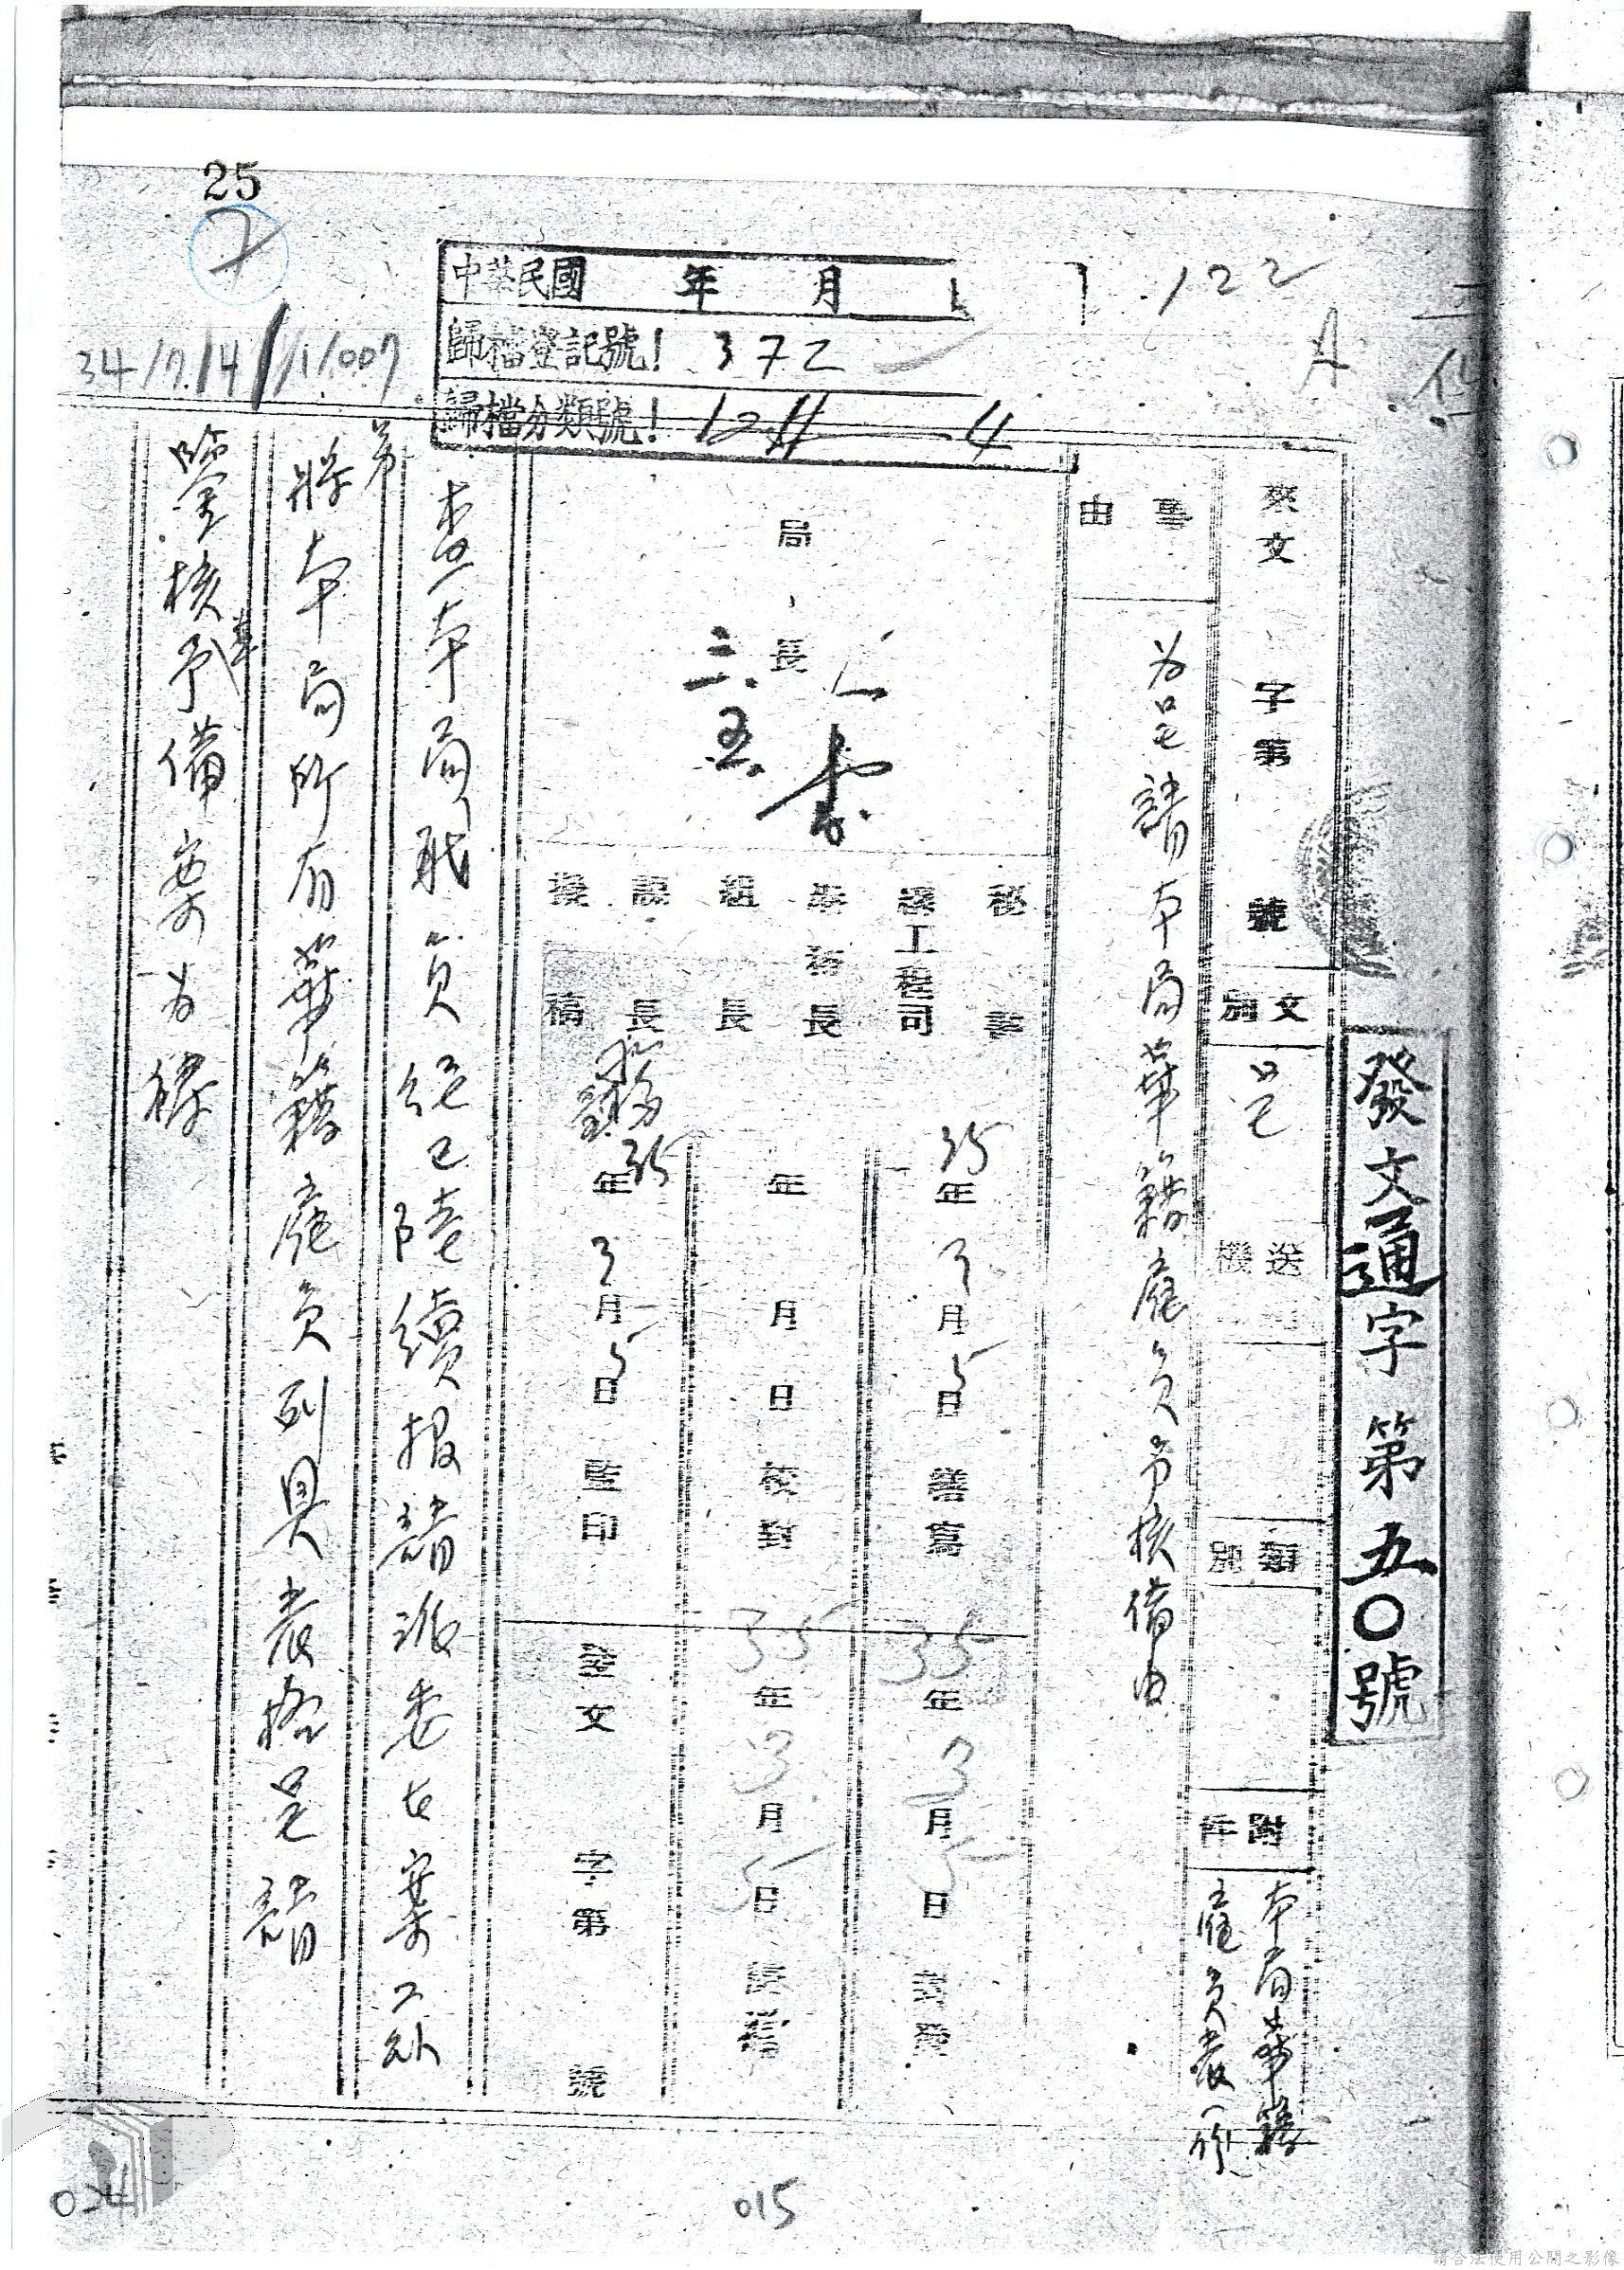 25
7
34/7.14/1/007
中華民國 年 月
歸檔登記號！372
歸檔分類號！
122
A
發文通字第五〇號
來文 字第 號
文別 呈
送 機
類別
附件 本局華籍
雇員表一份
事由
為呈請本局華籍雇員予核備由
局長
三.五.
李
秘書
工程司
長
組長
課長
擬稿
35年3月5日繕寫
35年3月5日封發
年 月 日校對
35年3月5日歸檔
35年3月5日監印
發文 字第 號
查本局職員經已陸續報請派委在案
將本局所有華籍雇員列具表格呈請
鑒核予備案為禱
024
015
請合法使用公開之影像